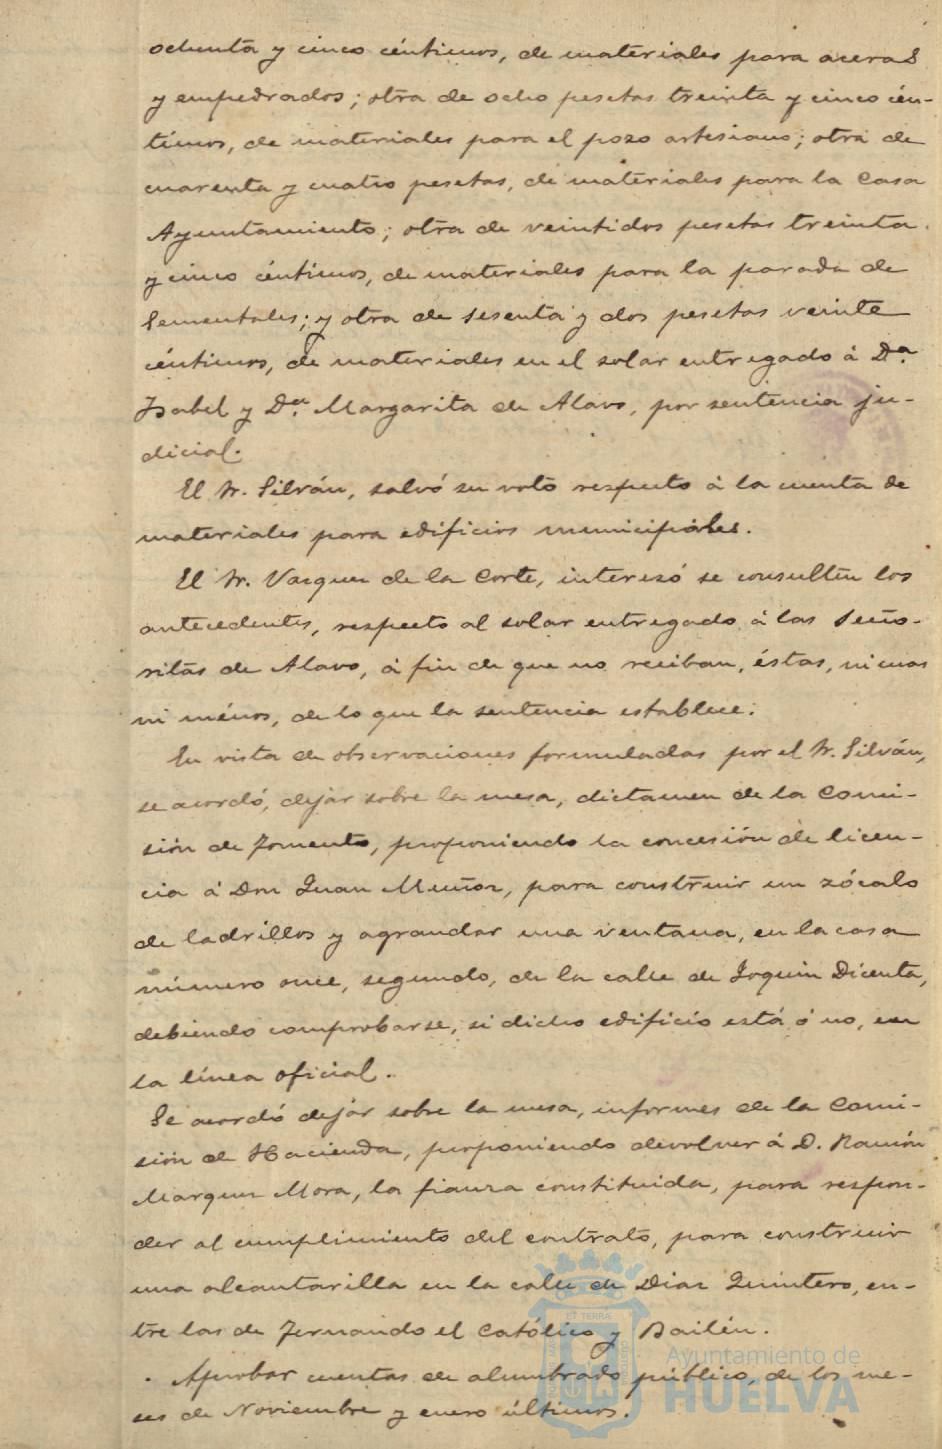 ochenta y cinco céntimos, de materiales para aceras
y empedrados; otra de ocho pesetas treinta y cinco cén-
timos, de materiales para el pozo artesiano; otra de
cuarenta y cuatro pesetas, de materiales para la Casa
Ayuntamiento; otra de veintidos pesetas treinta
y cinco céntimos, de materiales para la parada de
Sementales; y otra de sesenta y dos pesetas veinte
céntimos, de materiales en el solar entregado á Dª.
Isabel y Dª. Margarita de Alavo, por sentencia ju-
dicial.
El Sr. Silván, salvó su voto respecto á la cuenta de
materiales para edificios municipales.
El Sr. Vazquez de la Corte, interesó se consulten los
antecedentes, respecto al solar entregado á las Seño-
ritas de Alavo, á fin de que no reciban, éstas, ni mas
ni ménos, de lo que la sentencia establece.
En vista de observaciones formuladas por el Sr. Silván,
se acordó, dejar sobre la mesa, dictamen de la Comi-
sión de Fomento, proponiendo la concesión de licen-
cia á Don Juan Muñoz, para construir un zócalo
de ladrillos y agrandar una ventana, en la casa
número once, segundo, de la calle de Joquin Dicenta,
debiendo comprobarse, si dicho edificio está ó no, en
la línea oficial.
Se acordó dejar sobre la mesa, informes de la Comi-
sión de Hacienda, porponiendo devolver á D. Ramón
Marquez Mora, la fianza constituida, para respon-
der al cumplimiento del contrato, para construir
una alcantarilla en la calle de Diaz Quintero, en-
tre las de Fernando el Católico y Bailén.
Aprobar cuentas de alumbrado público, de los me-
ses de Noviembre y enero últimos.
Ayuntamiento de
HUELVA